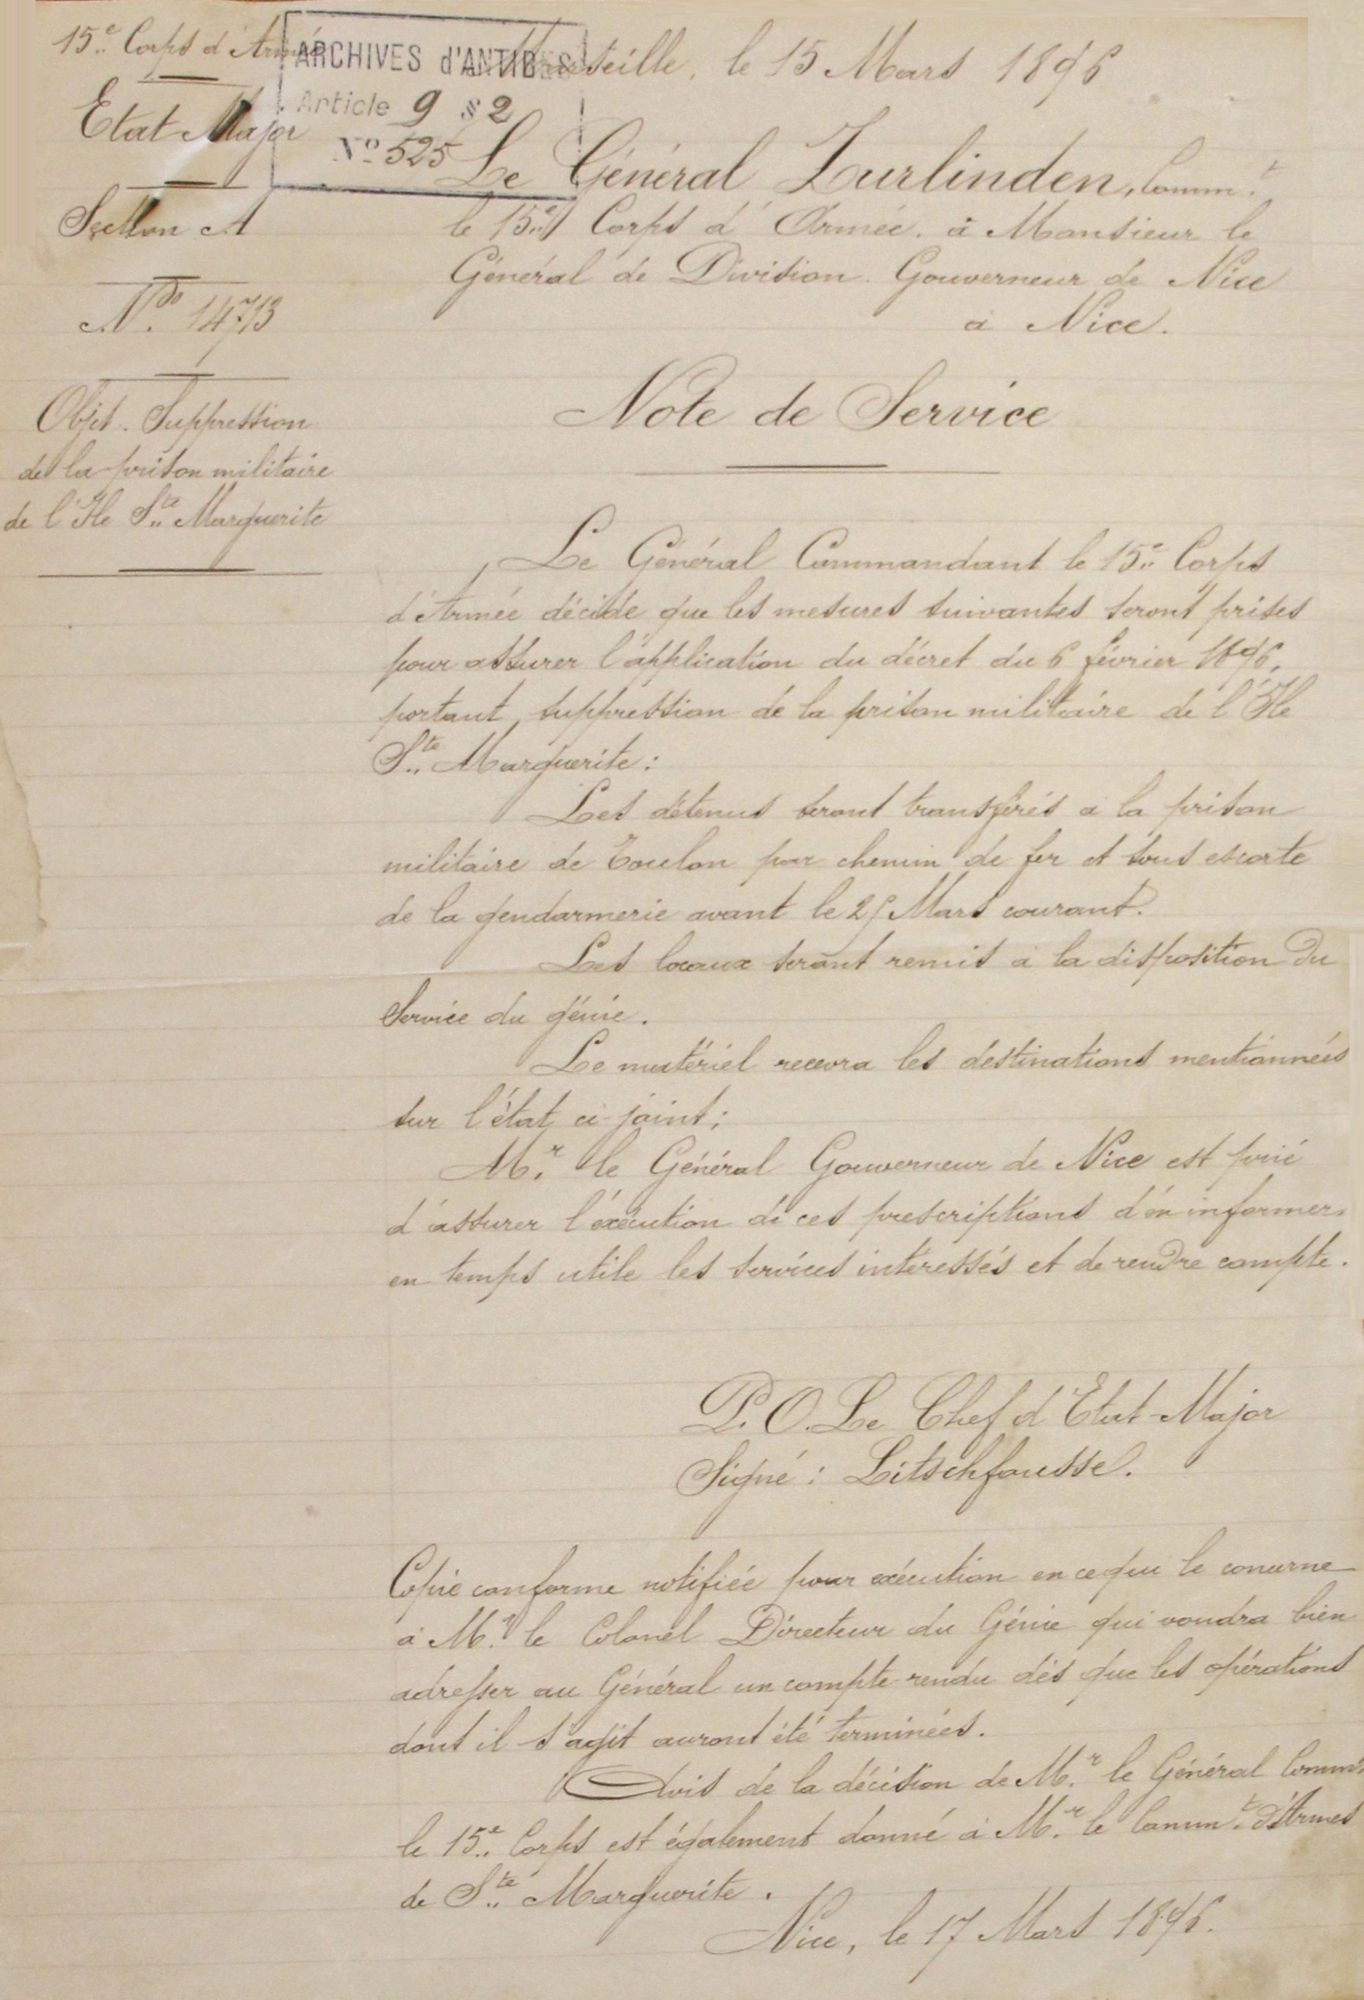 15e Corps d'Armée
ARCHIVES d'ANTIBES
Marseille, le 15 Mars 1896
Article 9 § 2
Etat-Major
No 525
Le Général Zurlinden, Commt
Section A
le 15e Corps d'Armée. à Monsieur le
Général de Division. Gouverneur de Nice
No. 14713
à Nice.
Objet. Suppression
de la prison militaire
de l'Ile Ste Marguerite
Note de Service
Le Général Commandant le 15e Corps
d'Armée décide que les mesures suivantes seront prises
pour assurer l'application du décret du 6 février 1896,
portant suppression de la prison militaire de l'Ile
Ste Marguerite :
Les détenus seront transférés à la prison
militaire de Toulon par chemin de fer et sous escorte
de la gendarmerie avant le Mars courant.
Les locaux seront remis à la disposition du
Service du génie.
Le matériel recevra les destinations mentionnées
sur l'état ci-joint ;
Mr. le Général Gouverneur de Nice est prié
d'assurer l'exécution de ces prescriptions d'en informer
en temps utile les services intéressés et de rendre compte.
P. O. Le Chef d'Etat-Major
Signé : Litschfousse.
Copie conforme notifiée pour exécution en ce qui le concerne
à Mr. le Colonel Directeur du Génie qui voudra bien
adresser au Général un compte rendu dès que les opérations
dont il s'agit auront été terminées.
Avis de la décision de Mr. le Général Commt
le 15e Corps est également donné à Mr. le Commt d'Armes
de Ste Marguerite.
Nice, le 17 Mars 1896.